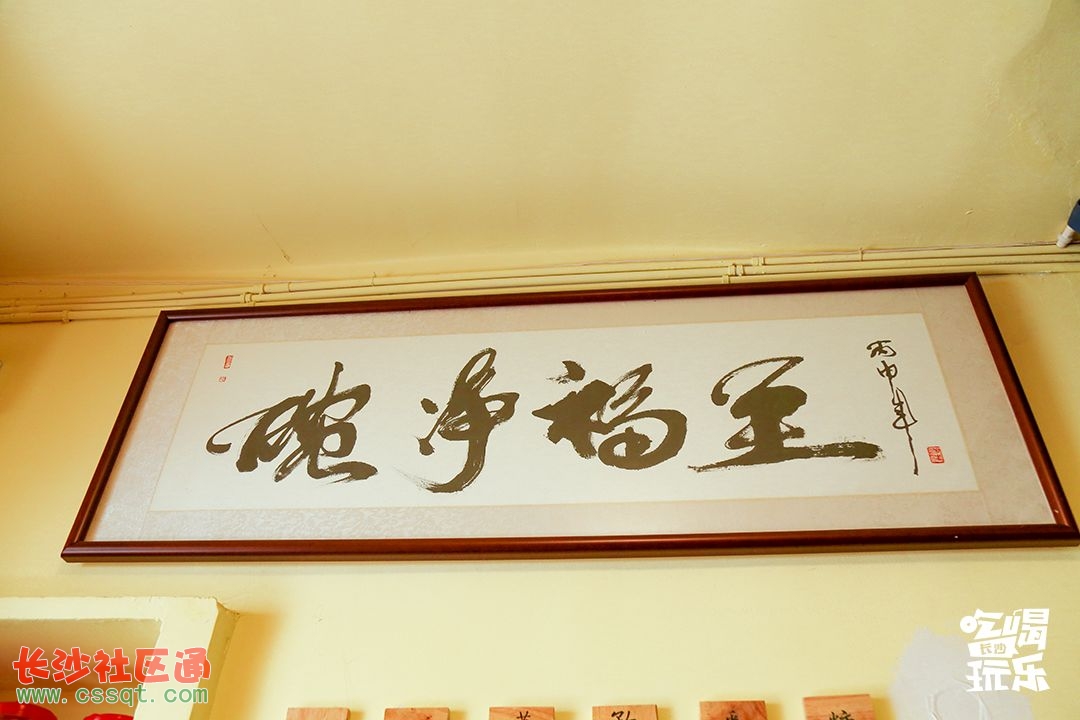 碗净福至
丙申年
长沙社区通
www.cssqt.com
吃喝
长沙
玩乐